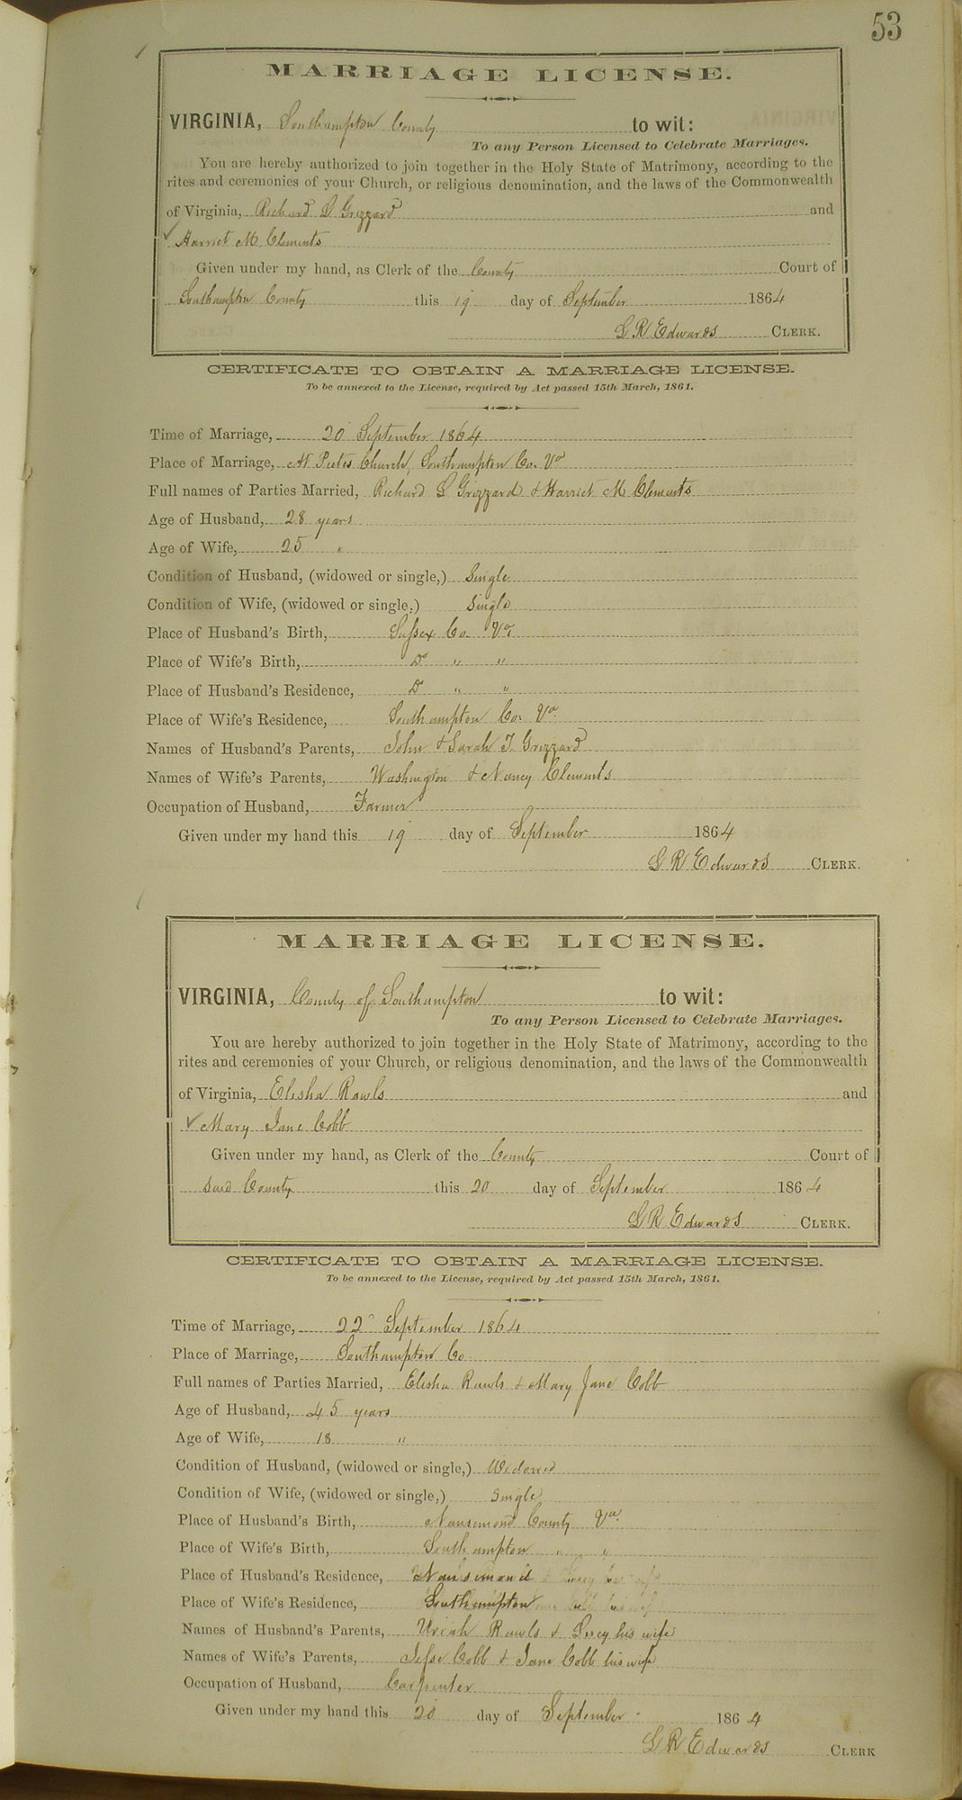 53
MARRIAGE LICENSE.
VIRGINIA, Southampton County to wit:
To any Person Licensed to Celebrate Marriages.
You are hereby authorized to join together in the Holy State of Matrimony, according to the
rites and ceremonies of your Church, or religious denomination, and the laws of the Commonwealth
of Virginia, Richard L Grizzard and
Harriet M Clements
Given under my hand, as Clerk of the County Court of
Southampton County this 19 day of September 1864
L R Edwards CLERK.
CERTIFICATE TO OBTAIN A MARRIAGE LICENSE.
To be annexed to the License, required by Act passed 15th March, 1861.
Time of Marriage, 20 September 1864
Place of Marriage, At Church, Southampton Co. Va
Full names of Parties Married, Richard L Grizzard & Harriet M Clements
Age of Husband, 28 years
Age of Wife, 25 "
Condition of Husband, (widowed or single,) Single
Condition of Wife, (widowed or single,) Single
Place of Husband's Birth, Sussex Co. Va
Place of Wife's Birth, Do " "
Place of Husband's Residence, Do " "
Place of Wife's Residence, Southampton Co. Va
Names of Husband's Parents, John & Sarah T. Grizzard
Names of Wife's Parents, Washington & Nancy Clements
Occupation of Husband, Farmer
Given under my hand this 19 day of September 1864
L R Edwards CLERK.
MARRIAGE LICENSE.
VIRGINIA, County of Southampton to wit:
To any Person Licensed to Celebrate Marriages.
You are hereby authorized to join together in the Holy State of Matrimony, according to the
rites and ceremonies of your Church, or religious denomination, and the laws of the Commonwealth
of Virginia, Elisha Rawls and
Mary Jane Cobb
Given under my hand, as Clerk of the County Court of
said County this 20 day of September 1864
L R Edwards CLERK.
CERTIFICATE TO OBTAIN A MARRIAGE LICENSE.
To be annexed to the License, required by Act passed 15th March, 1861.
Time of Marriage, 22 September 1864
Place of Marriage, Southampton Co
Full names of Parties Married, Elisha Rawls & Mary Jane Cobb
Age of Husband, 45 years
Age of Wife, 18 "
Condition of Husband, (widowed or single,) Widowed
Condition of Wife, (widowed or single,) Single
Place of Husband's Birth, Nansemond County Va.
Place of Wife's Birth, Southampton " "
Place of Husband's Residence, Nansemond
Place of Wife's Residence, Southampton
Names of Husband's Parents, Uriah Rawls & his wife
Names of Wife's Parents, Jesse Cobb & Jane Cobb his wife
Occupation of Husband, Carpenter
Given under my hand this 20 day of September 1864
L R Edwards CLERK